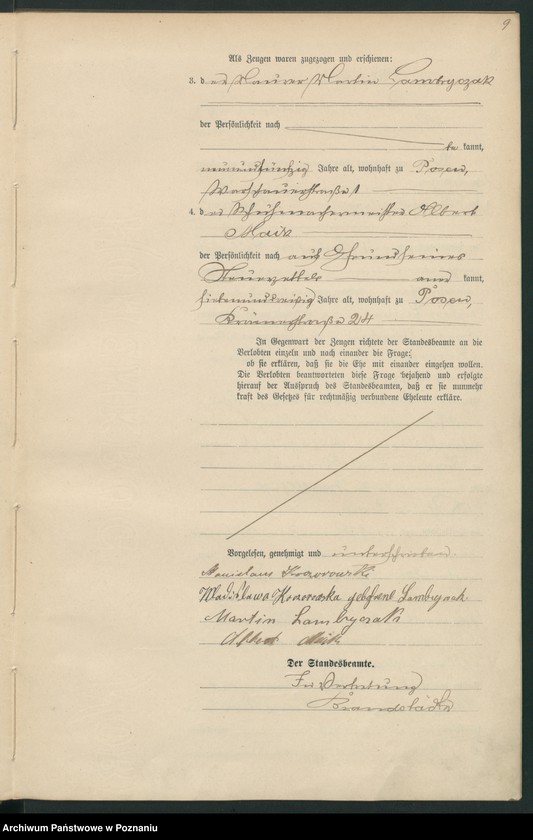 9
Als Zeugen waren zugezogen und erschienen:
3. der Maurer Martin Lambryczak
der Persönlichkeit nach
be kannt,
neunundfünfzig Jahre alt, wohnhaft zu Posen,
Warschauerstraße 1
4. der Schuhmachermeister Albert
der Persönlichkeit nach auf Grund seines
Steuerzettels aner kannt,
siebenunddreißig Jahre alt, wohnhaft zu Posen,
24
In Gegenwart der Zeugen richtete der Standesbeamte an die
Verlobten einzeln und nach einander die Frage:
ob sie erklären, daß sie die Ehe mit einander eingehen wollen.
Die Verlobten beantworteten diese Frage bejahend und erfolgte
hierauf der Ausspruch des Standesbeamten, daß er sie nunmehr
kraft des Gesetzes für rechtmäßig verbundene Eheleute erkläre.
Vorgelesen, genehmigt und unterschrieben
geborene Lambryczak
Martin Lambryczak
Albert
Der Standesbeamte.
In Vertretung
Archiwum Państwowe w Poznaniu